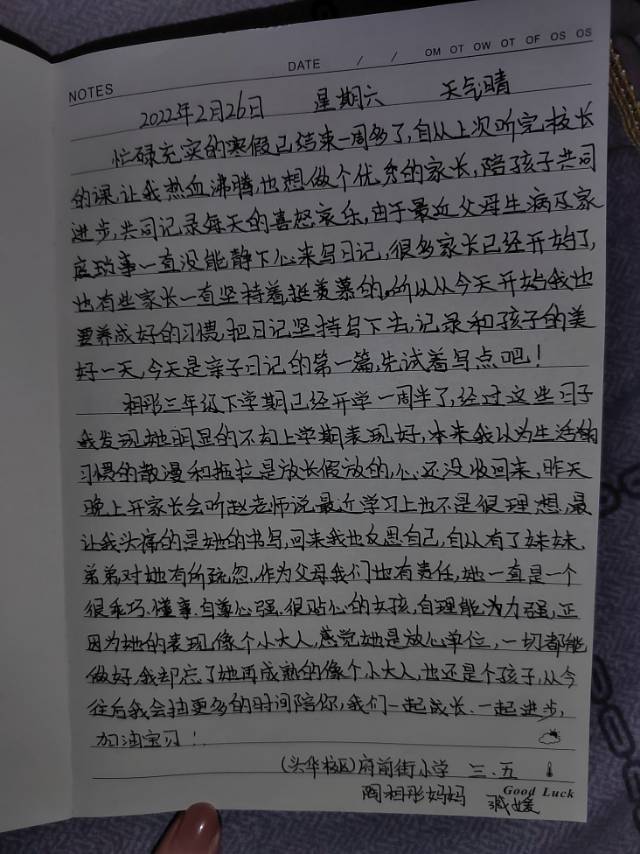 NOTES
DATE / / OM OT OW OT OF OS OS
2022年2月26日 星期六 天气晴
忙碌充实的寒假已结束一周多了,自从上次听完校长
的课,让我热血沸腾,也想做个优秀的家长,陪孩子共同
进步,共同记录每天的喜怒哀乐,由于最近父母生病及家
庭琐事一直没能静下心来写日记,很多家长已经开始了,
也有些家长一直坚持着挺羡慕的,所以从今天开始我也
要养成好的习惯,把日记坚持写下去,记录和孩子的美
好一天,今天是亲子日记的第一篇,先试着写点吧!
相彤三年级下学期已经开学一周半了,经过这些日子
我发现她明显的不如上学期表现好,本来我以为生活的
习惯的散漫和拖拉是放长假放的,心还没收回来,昨天
晚上开家长会听赵老师说最近学习上也不是很理想,最
让我头痛的是她的书写,回来我也反思自己,自从有了妹妹、
弟弟对她有所疏忽,作为父母我们也有责任,她一直是一个
很乖巧、懂事、自尊心强、很贴心的女孩,自理能力强,正
因为她的表现像个小大人,感觉她是放心单位,一切都能
做好,我却忘了她再成熟的像个小大人,也还是个孩子,从今
往后我会抽更多的时间陪你,我们一起成长、一起进步,
加油宝贝!
(头华校区)府前街小学 三.五
Good Luck
陶相彤妈妈 臧媛